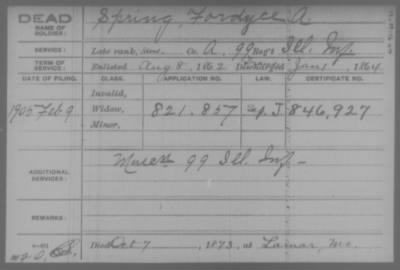 DEAD
NAME OF SOLDIER: Spring, Fordyce A
SERVICE: Late rank, Co. A, 99 Reg't Ill. Inf.
TERM OF SERVICE: Enlisted Aug 8, 1862 Discharged Jan 1, 1864
DATE OF FILING. CLASS. APPLICATION NO. LAW. CERTIFICATE NO.
Invalid,
1905 Feb 9 Widow, 821.857 846,927
Minor,
ADDITIONAL SERVICES: 99 Ill. Inf
REMARKS:
Died Oct 7, 1873, at Lamar, Mo.